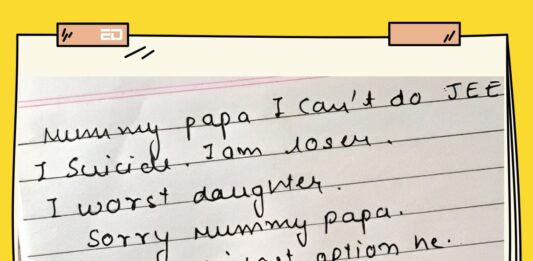 ED
Mummy papa I can't do JEE
I Suicide. I am loser.
I worst daughter.
Sorry Mummy papa.
option he.